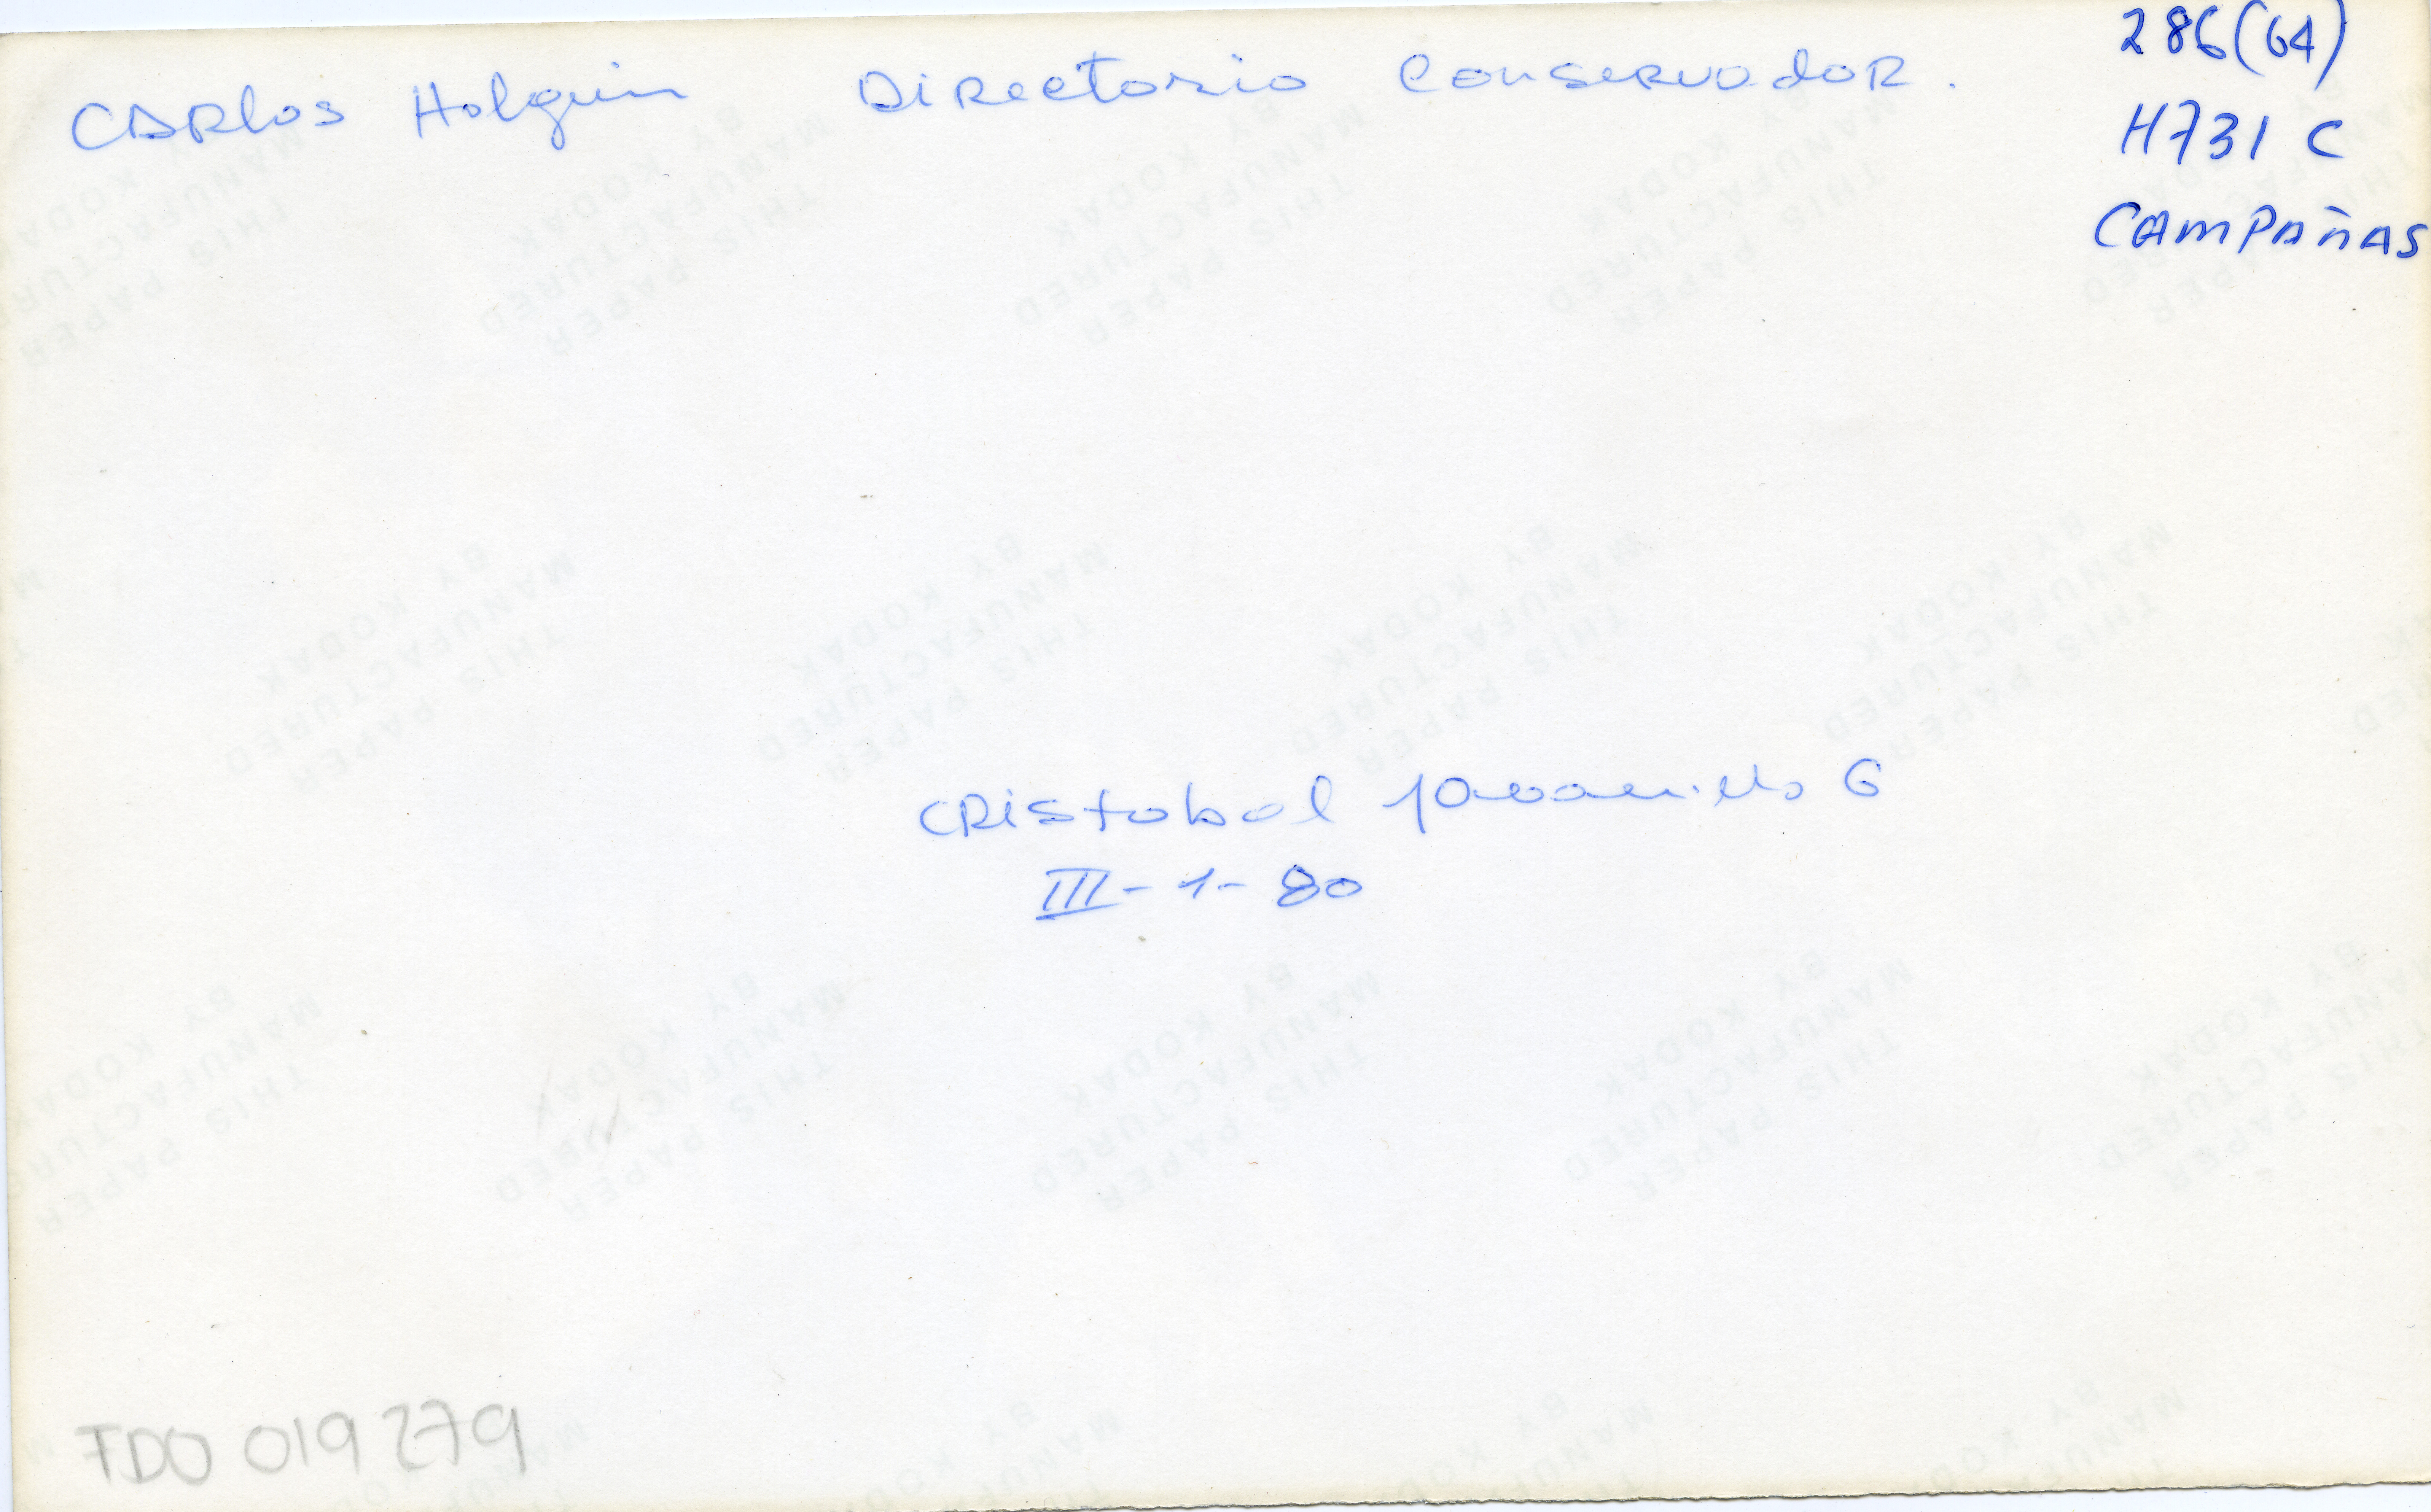 Carlos Holguin Directorio Conservador.
286(64)
H731 C
CAMPAÑAS
Cristobal
III-1-80
TDO 019279
THIS PAPER
MANUFACTURED
BY KODAK